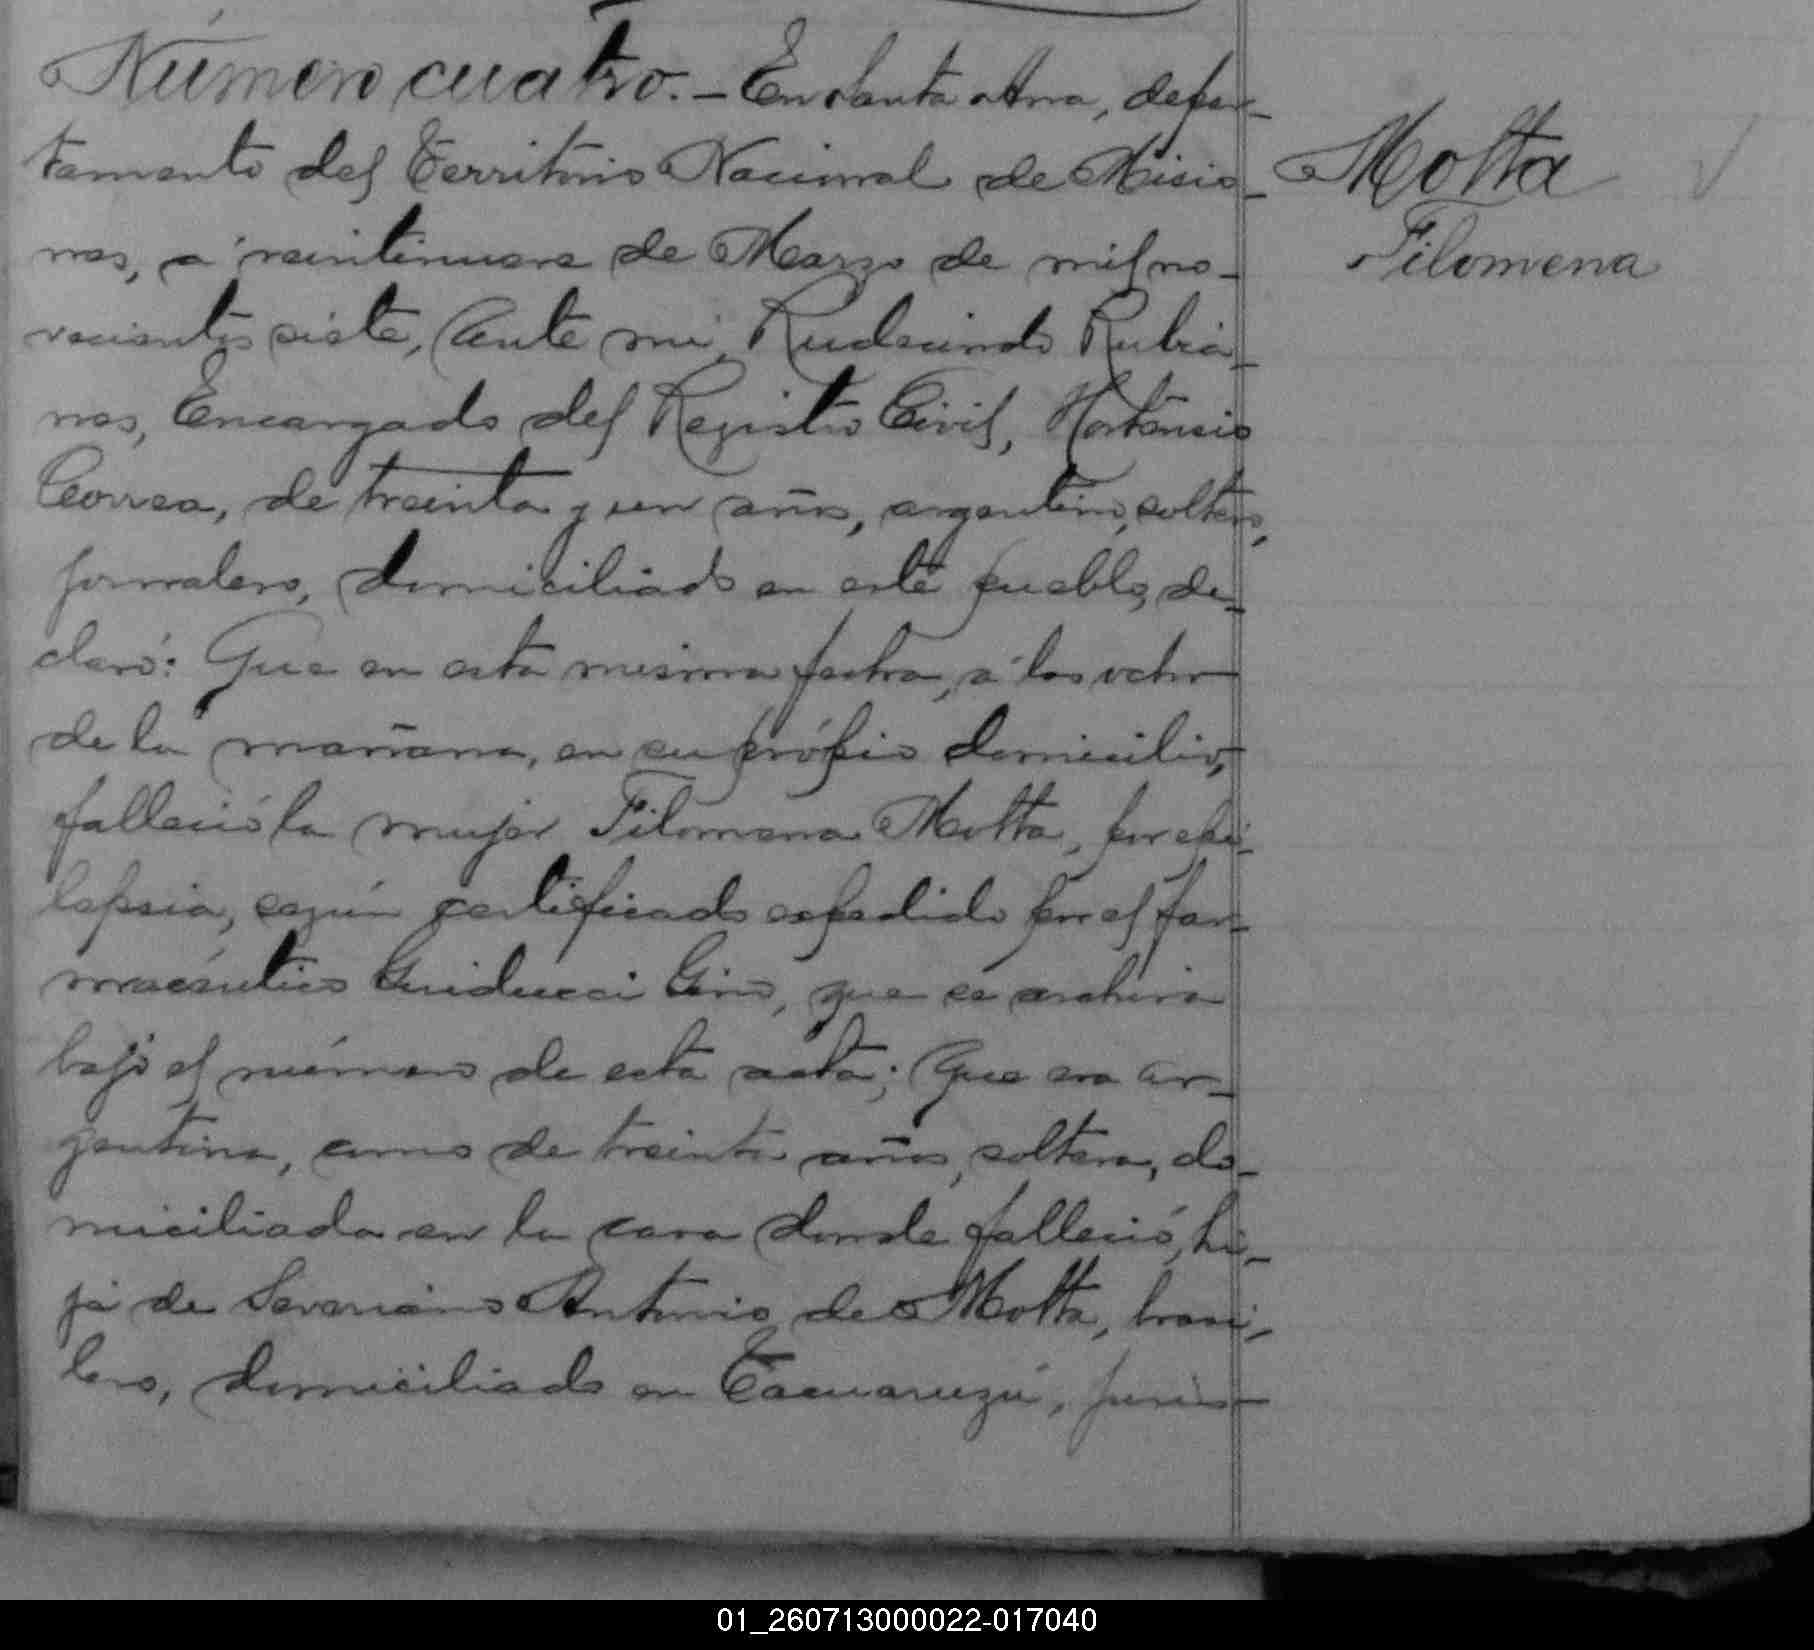 Número cuatro.- En Santa Ana, depar-
tamento del Territorio Nacional de Misio-
nes, á veintinueve de Marzo de mil no-
vecientos siete, Ante mi, Rudecindo Rubia-
nes, Encargado del Registro Civil, Hortensio
Correa, de treinta y un años, argentino, soltero,
jornalero, domiciliado en este pueblo, de-
claró: Que en esta misma fecha, á las ocho
de la mañana, en su própio domicilio,
falleció la mujer Filomena Motta, por epi-
lepsia, según certificado espedido por el far-
macéutico Guiducci Gino, que se archiva
bajo el número de esta acta; Que era ar-
gentina, como de treinta años, soltera, do-
miciliada en la casa donde falleció, hi-
ja de Severiano Antonio de Motta, brasi-
lero, domiciliado en Tacuaruzú, juris-
Motta
Filomena
01_260713000022-017040